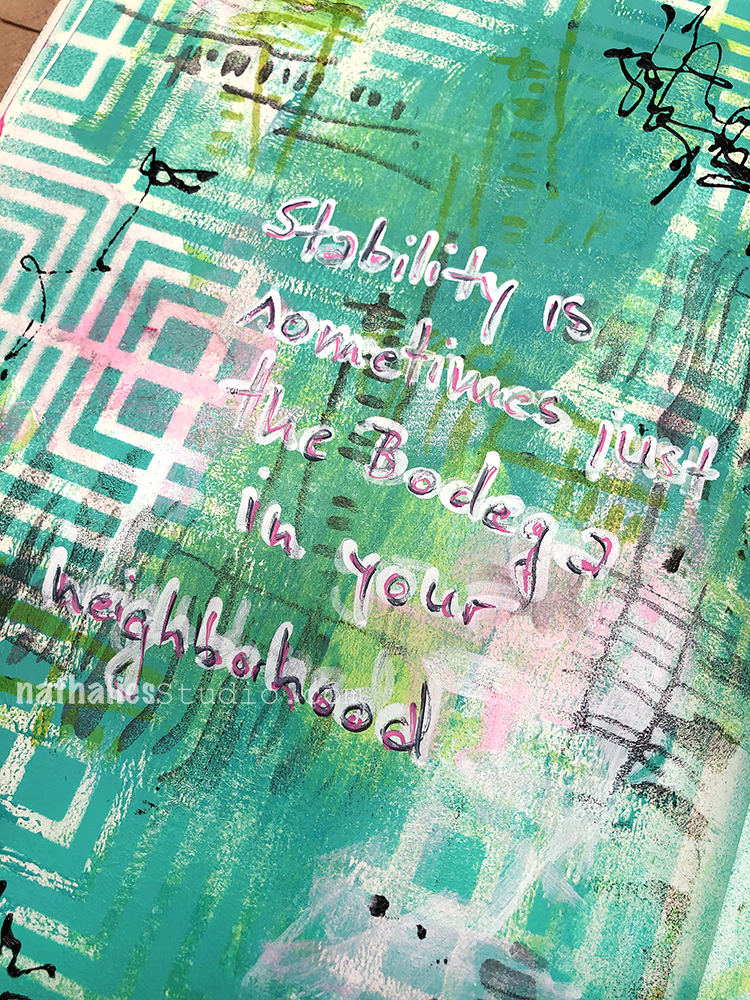 Stability is
sometimes just
the Bodega
in your
neighborhood
nathaliesstudio.com